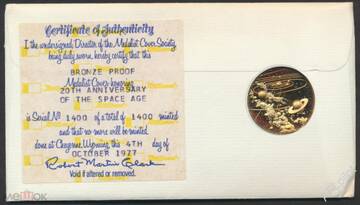 Certificate of Authenticity
I the undersigned Director of the Medalist Cover Society,
being duly sworn, hereby certify that this
BRONZE PROOF
Medalist Cover honoring
20TH ANNIVERSARY
OF THE SPACE AGE
is Serial No 1400 of a total of 1400 minted
and that no more will be minted
done at Cheyenne, Wyoming, this 4TH day of
OCTOBER 1977
Robert Martin Clark
Void if altered or removed.
МЕШОК